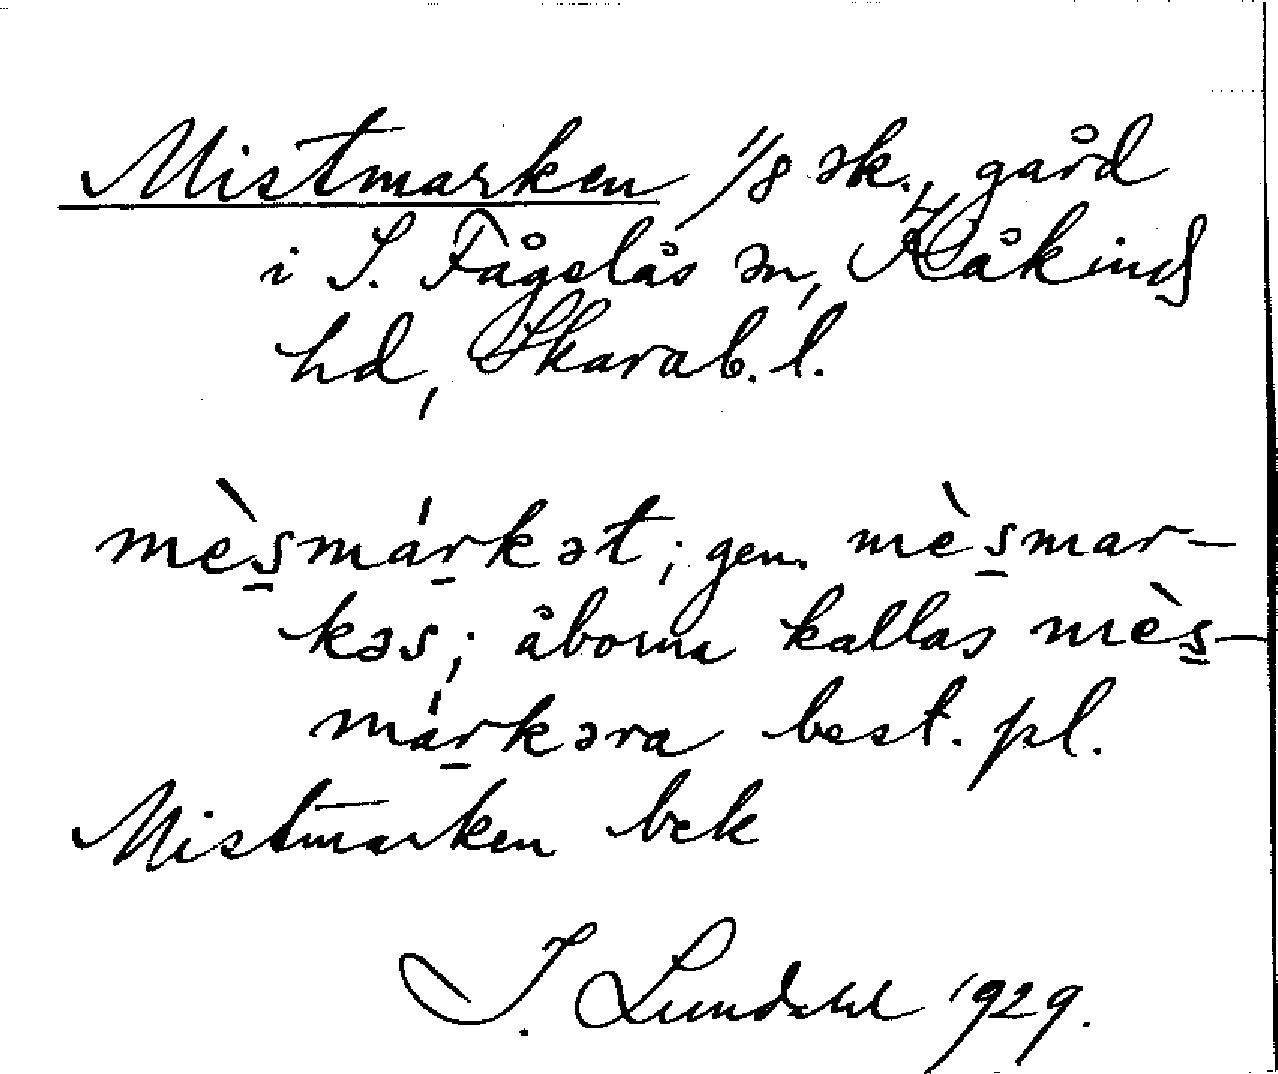 Mistmarken 1/8 sk., gård
i S. Fågelås sn, Kåkinds
hd, Skarab. l.
mès̠már̠kət; gen. mès̠mar-
kəs; åborna kallas mès̠-
már̠kəra best. pl.
Mistmarken bek
I. Lundahl 1929.